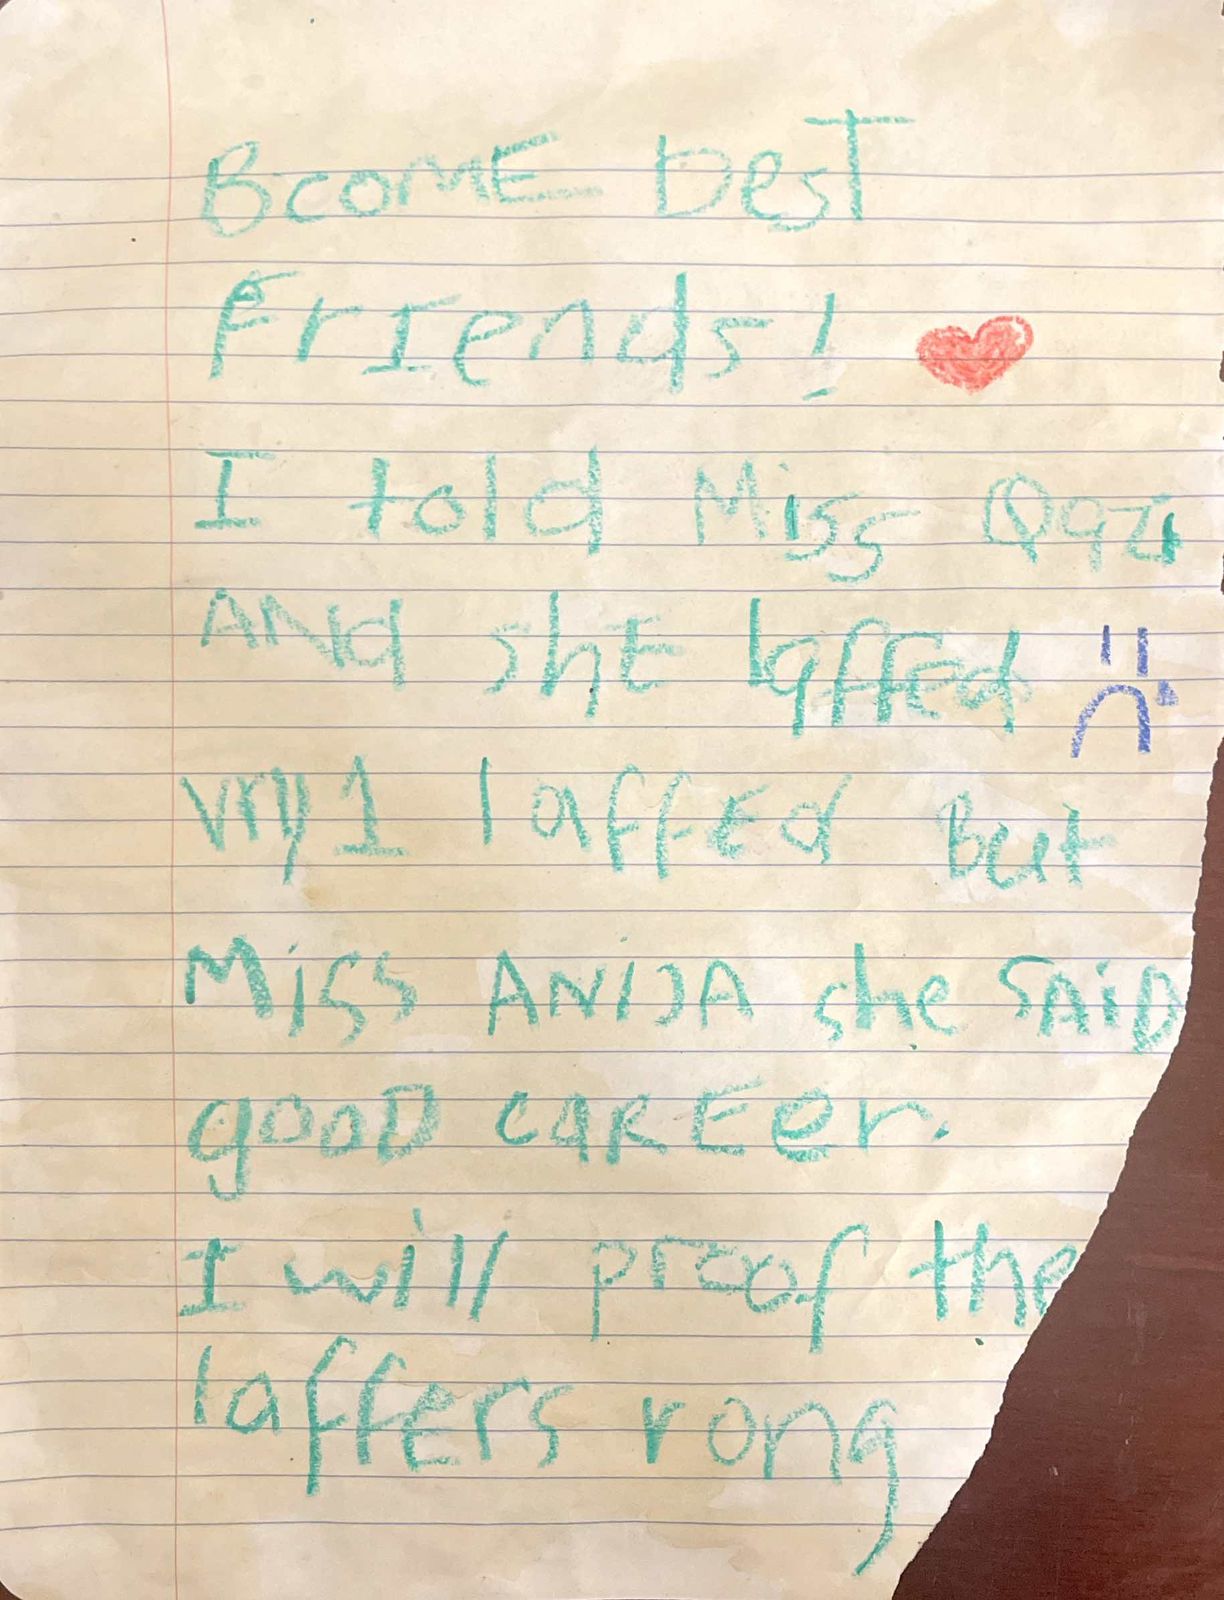 BcoME best
friends!
I told Miss Qazi
ANd shE laffed
vry1 laffEd But
Miss ANIJA she SAiD
gooD caREer.
I will proof the
laffers rong